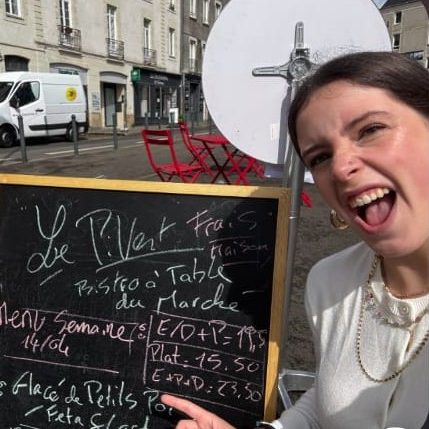 Le Pi.Vert
Frais
Maison
Bistro à Table
du Marché
Menu Semaine
14/04
E/D+P=19,5
Plat=15.50
E+P+D=23,50
Glacé de Petits Poi
Feta